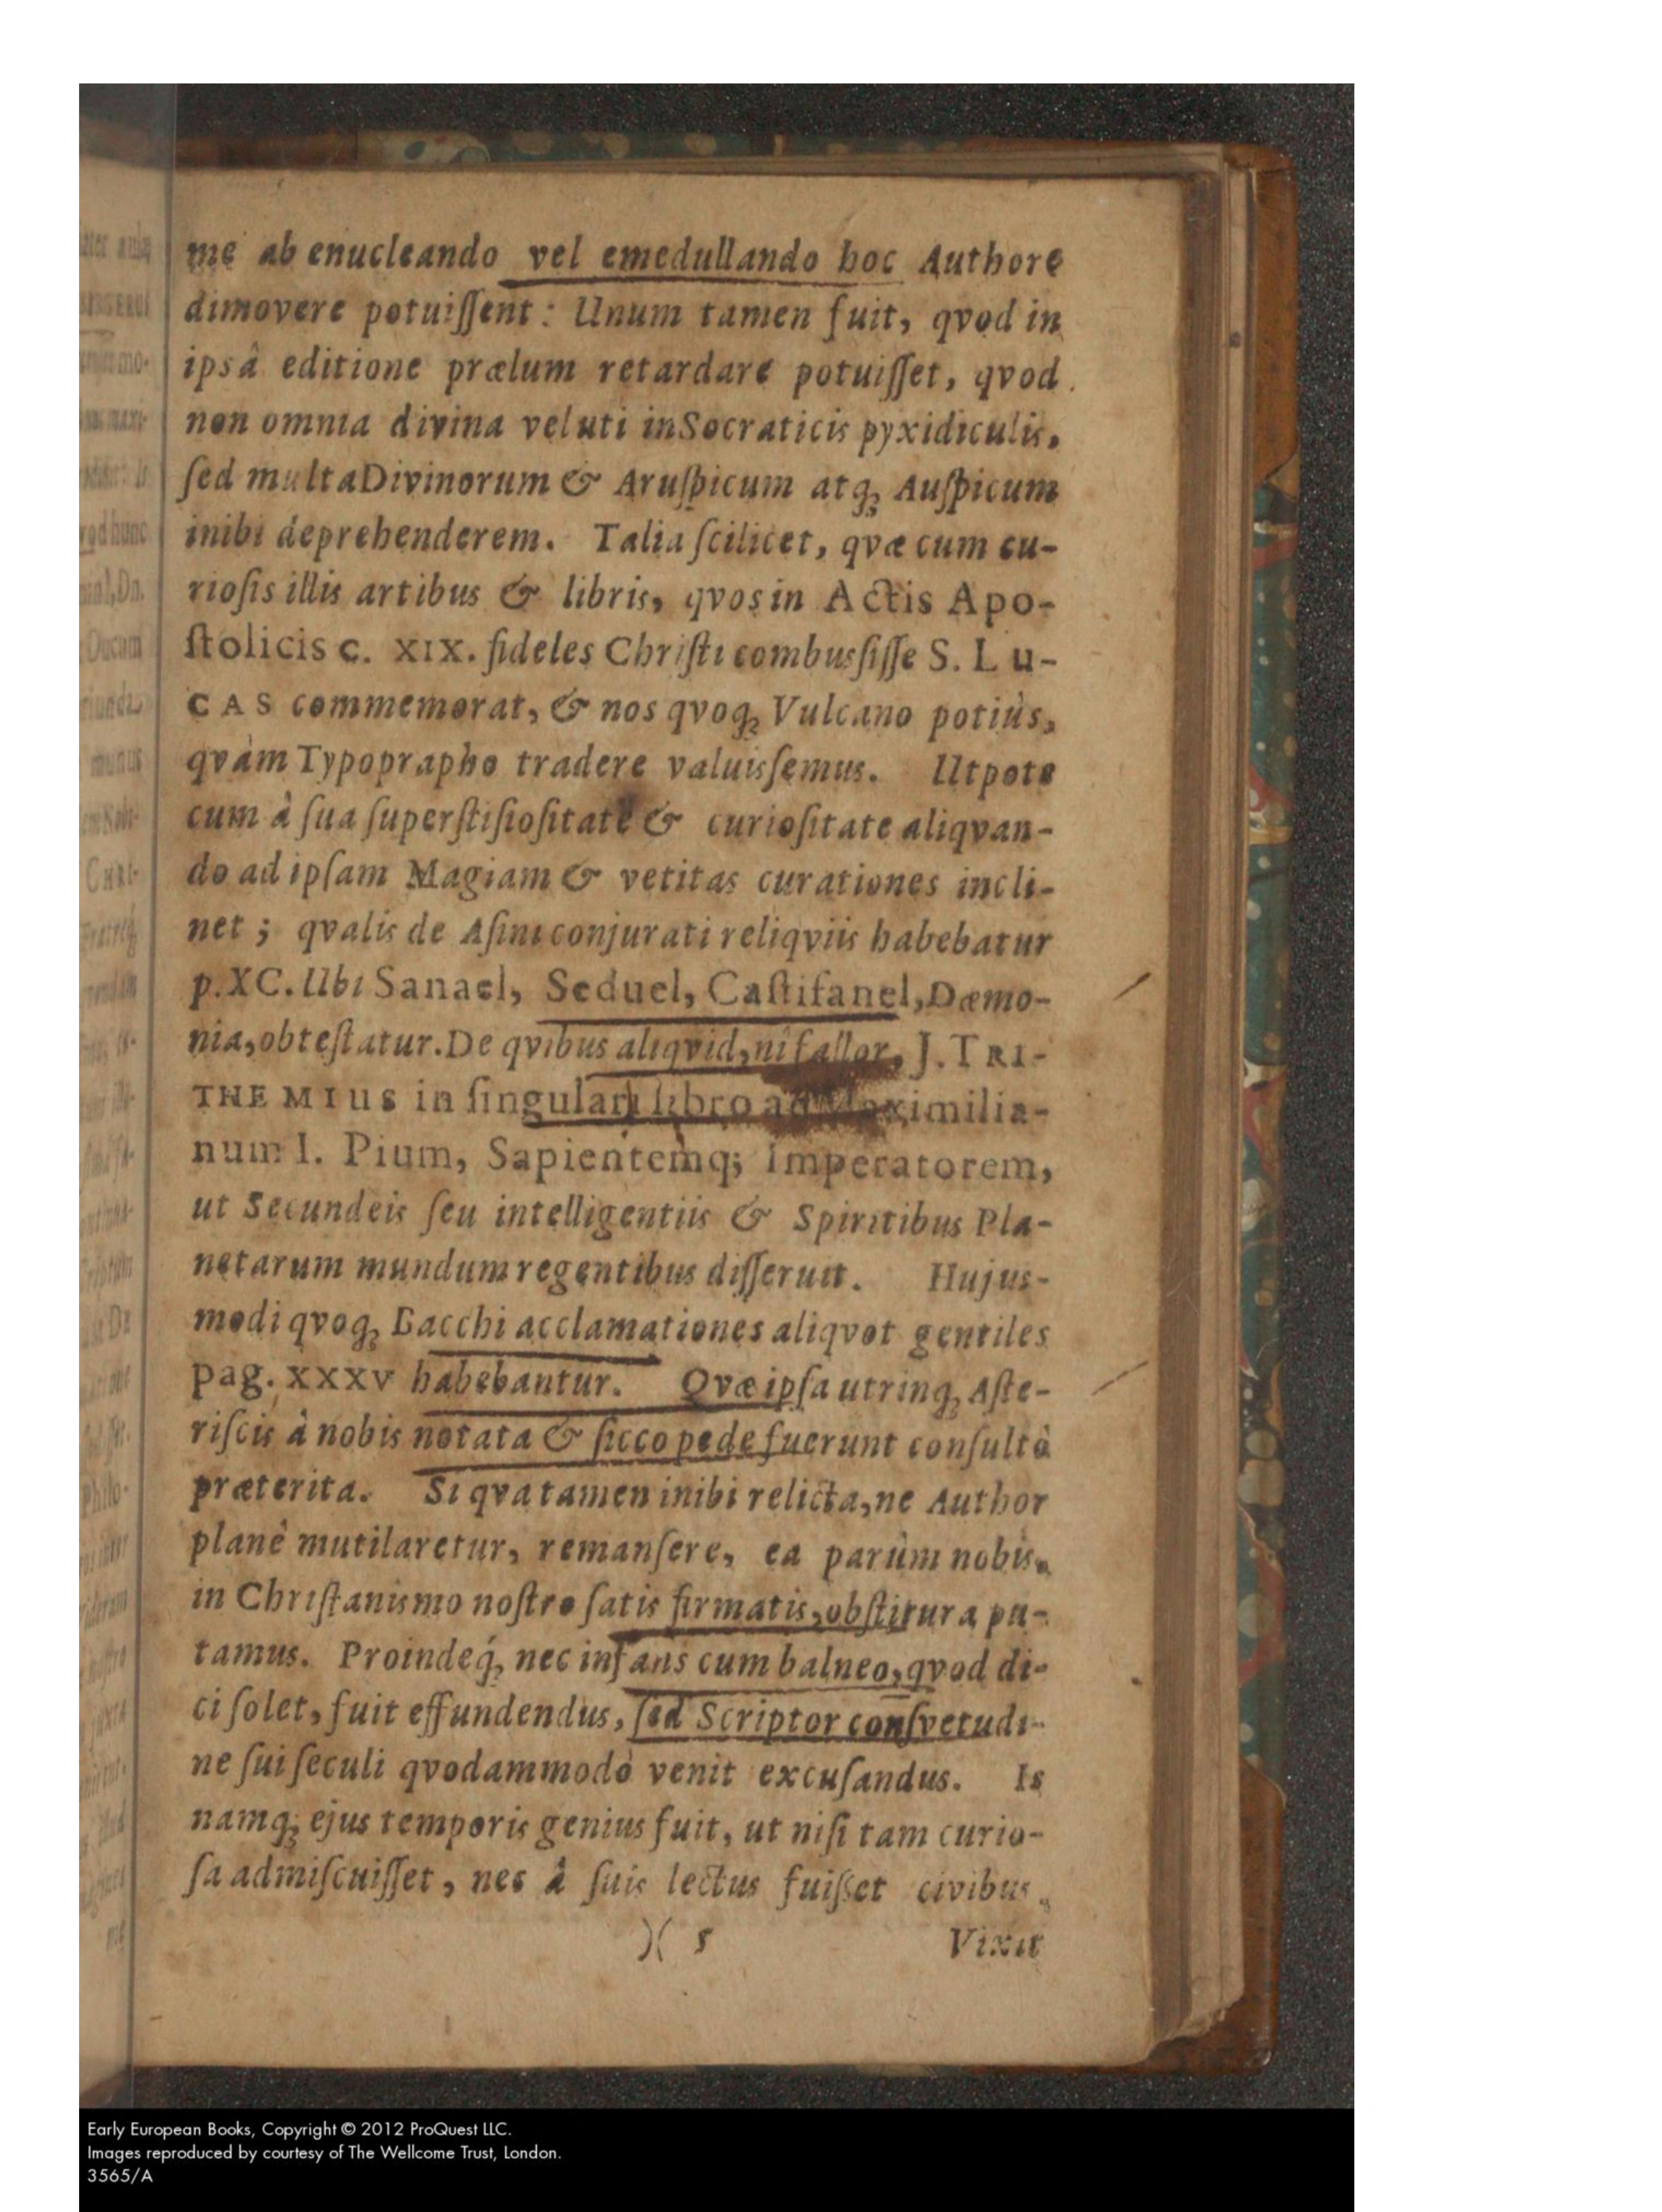 me ab enucleando vel emedullando hoc Authore
dimovere potuiſſent: Unum tamen fuit, qvod in
ipsâ editione prælum retardare potuiſſet, qvod
non omnia divina veluti inSocraticis pyxidiculis,
ſed multaDivinorum & Aruſpicum atq; Auſpicum
inibi deprehenderem. Talia ſcilicet, qvæ cum cu-
rioſis illis artibus & libris, qvos in Actis Apo-
ſtolicis c. XIX. fideles Chriſti combusſiſſe S. Lu-
CAS commemorat, & nos qvoq; Vulcano potiùs,
qvàm Typoprapho tradere valuisſemus. Utpote
cum à ſua ſuperſtiſioſitate & curioſitate aliqvan-
do ad ipſam Magiam & vetitas curationes incli-
net; qvalis de Aſini conjurati reliqviis habebatur
p.XC. Ubi Sanael, Seduel, Caſtifanel, Dæmo-
nia, obteſtatur. De qvibus aliqvid, ni fallor, J. TRI-
THEMIus in ſingulari libro ad Maximilia-
num I. Pium, Sapientemq; Imperatorem,
ut Secundeis ſeu intelligentiis & Spiritibus Pla-
netarum mundum regentibus diſſeruit. Hujus-
modi qvoq; Bacchi acclamationes aliqvot gentiles
pag. XXXV habebantur. Qvæ ipſa utrinq; Aſte-
riſcis à nobis notata & ſicco pede fuerunt conſultò
præterita. Si qva tamen inibi relicta, ne Author
planè mutilaretur, remanſere, ea parùm nobis
in Chriſtanismo noſtro ſatis firmatis, obſtitura pu-
tamus. Proindeq́; nec infans cum balneo, qvod di-
ci ſolet, fuit effundendus, ſed Scriptor conſvetudi-
ne ſui ſeculi qvodammodò venit excuſandus. Is
namq; ejus temporis genius fuit, ut niſi tam curio-
ſa admiſcuiſſet, nec à ſuis lectus fuiſset civibus.
)( 5 Vixit
Early European Books, Copyright © 2012 ProQuest LLC.
Images reproduced by courtesy of The Wellcome Trust, London.
3565/A